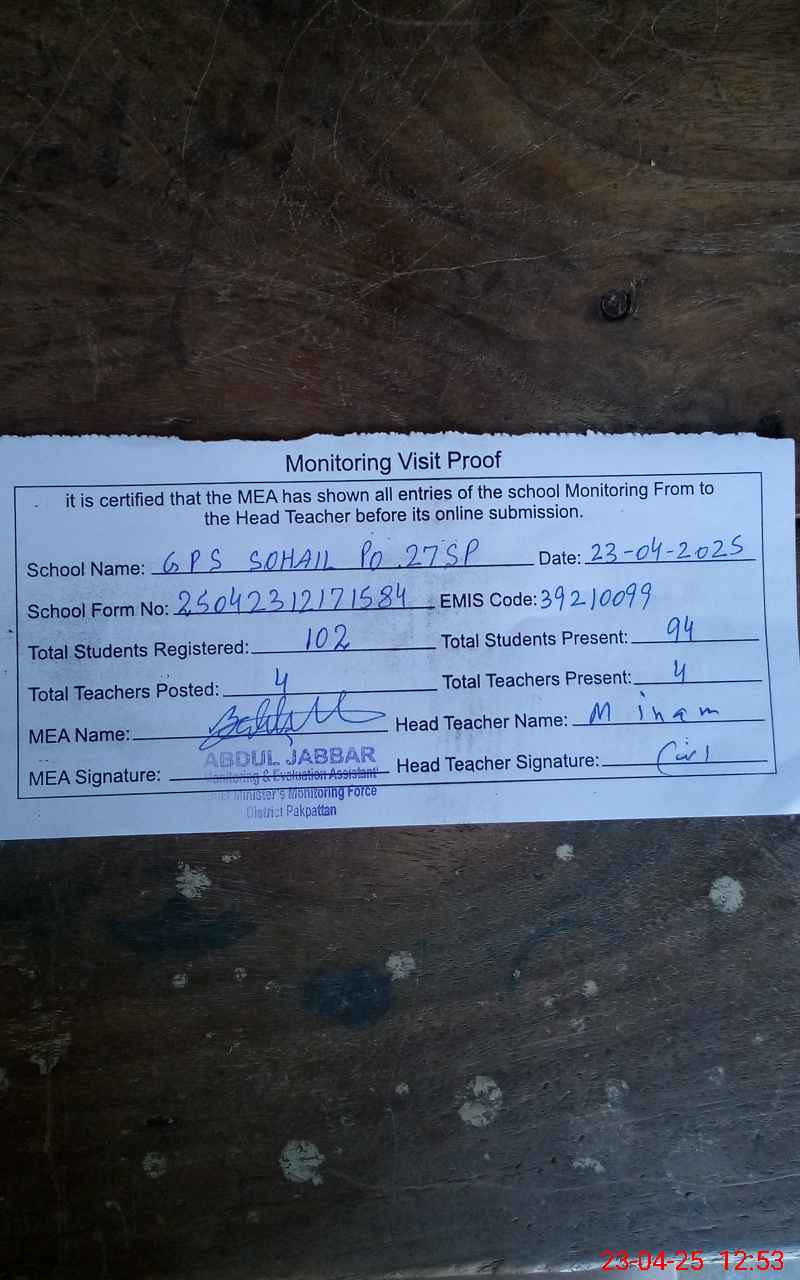 Monitoring Visit Proof
it is certified that the MEA has shown all entries of the school Monitoring From to
the Head Teacher before its online submission.
School Name: GPS SOHAIL PO 27SP Date: 23-04-2025
School Form No: 25042312171584 EMIS Code: 39210099
Total Students Registered: 102 Total Students Present: 94
Total Teachers Posted: 4 Total Teachers Present: 4
MEA Name: Head Teacher Name:
MEA Signature: Head Teacher Signature:
ABDUL JABBAR
Monitoring & Evaluation Assistant
Minister's Monitoring Force
District Pakpattan
23-04-25 12:53